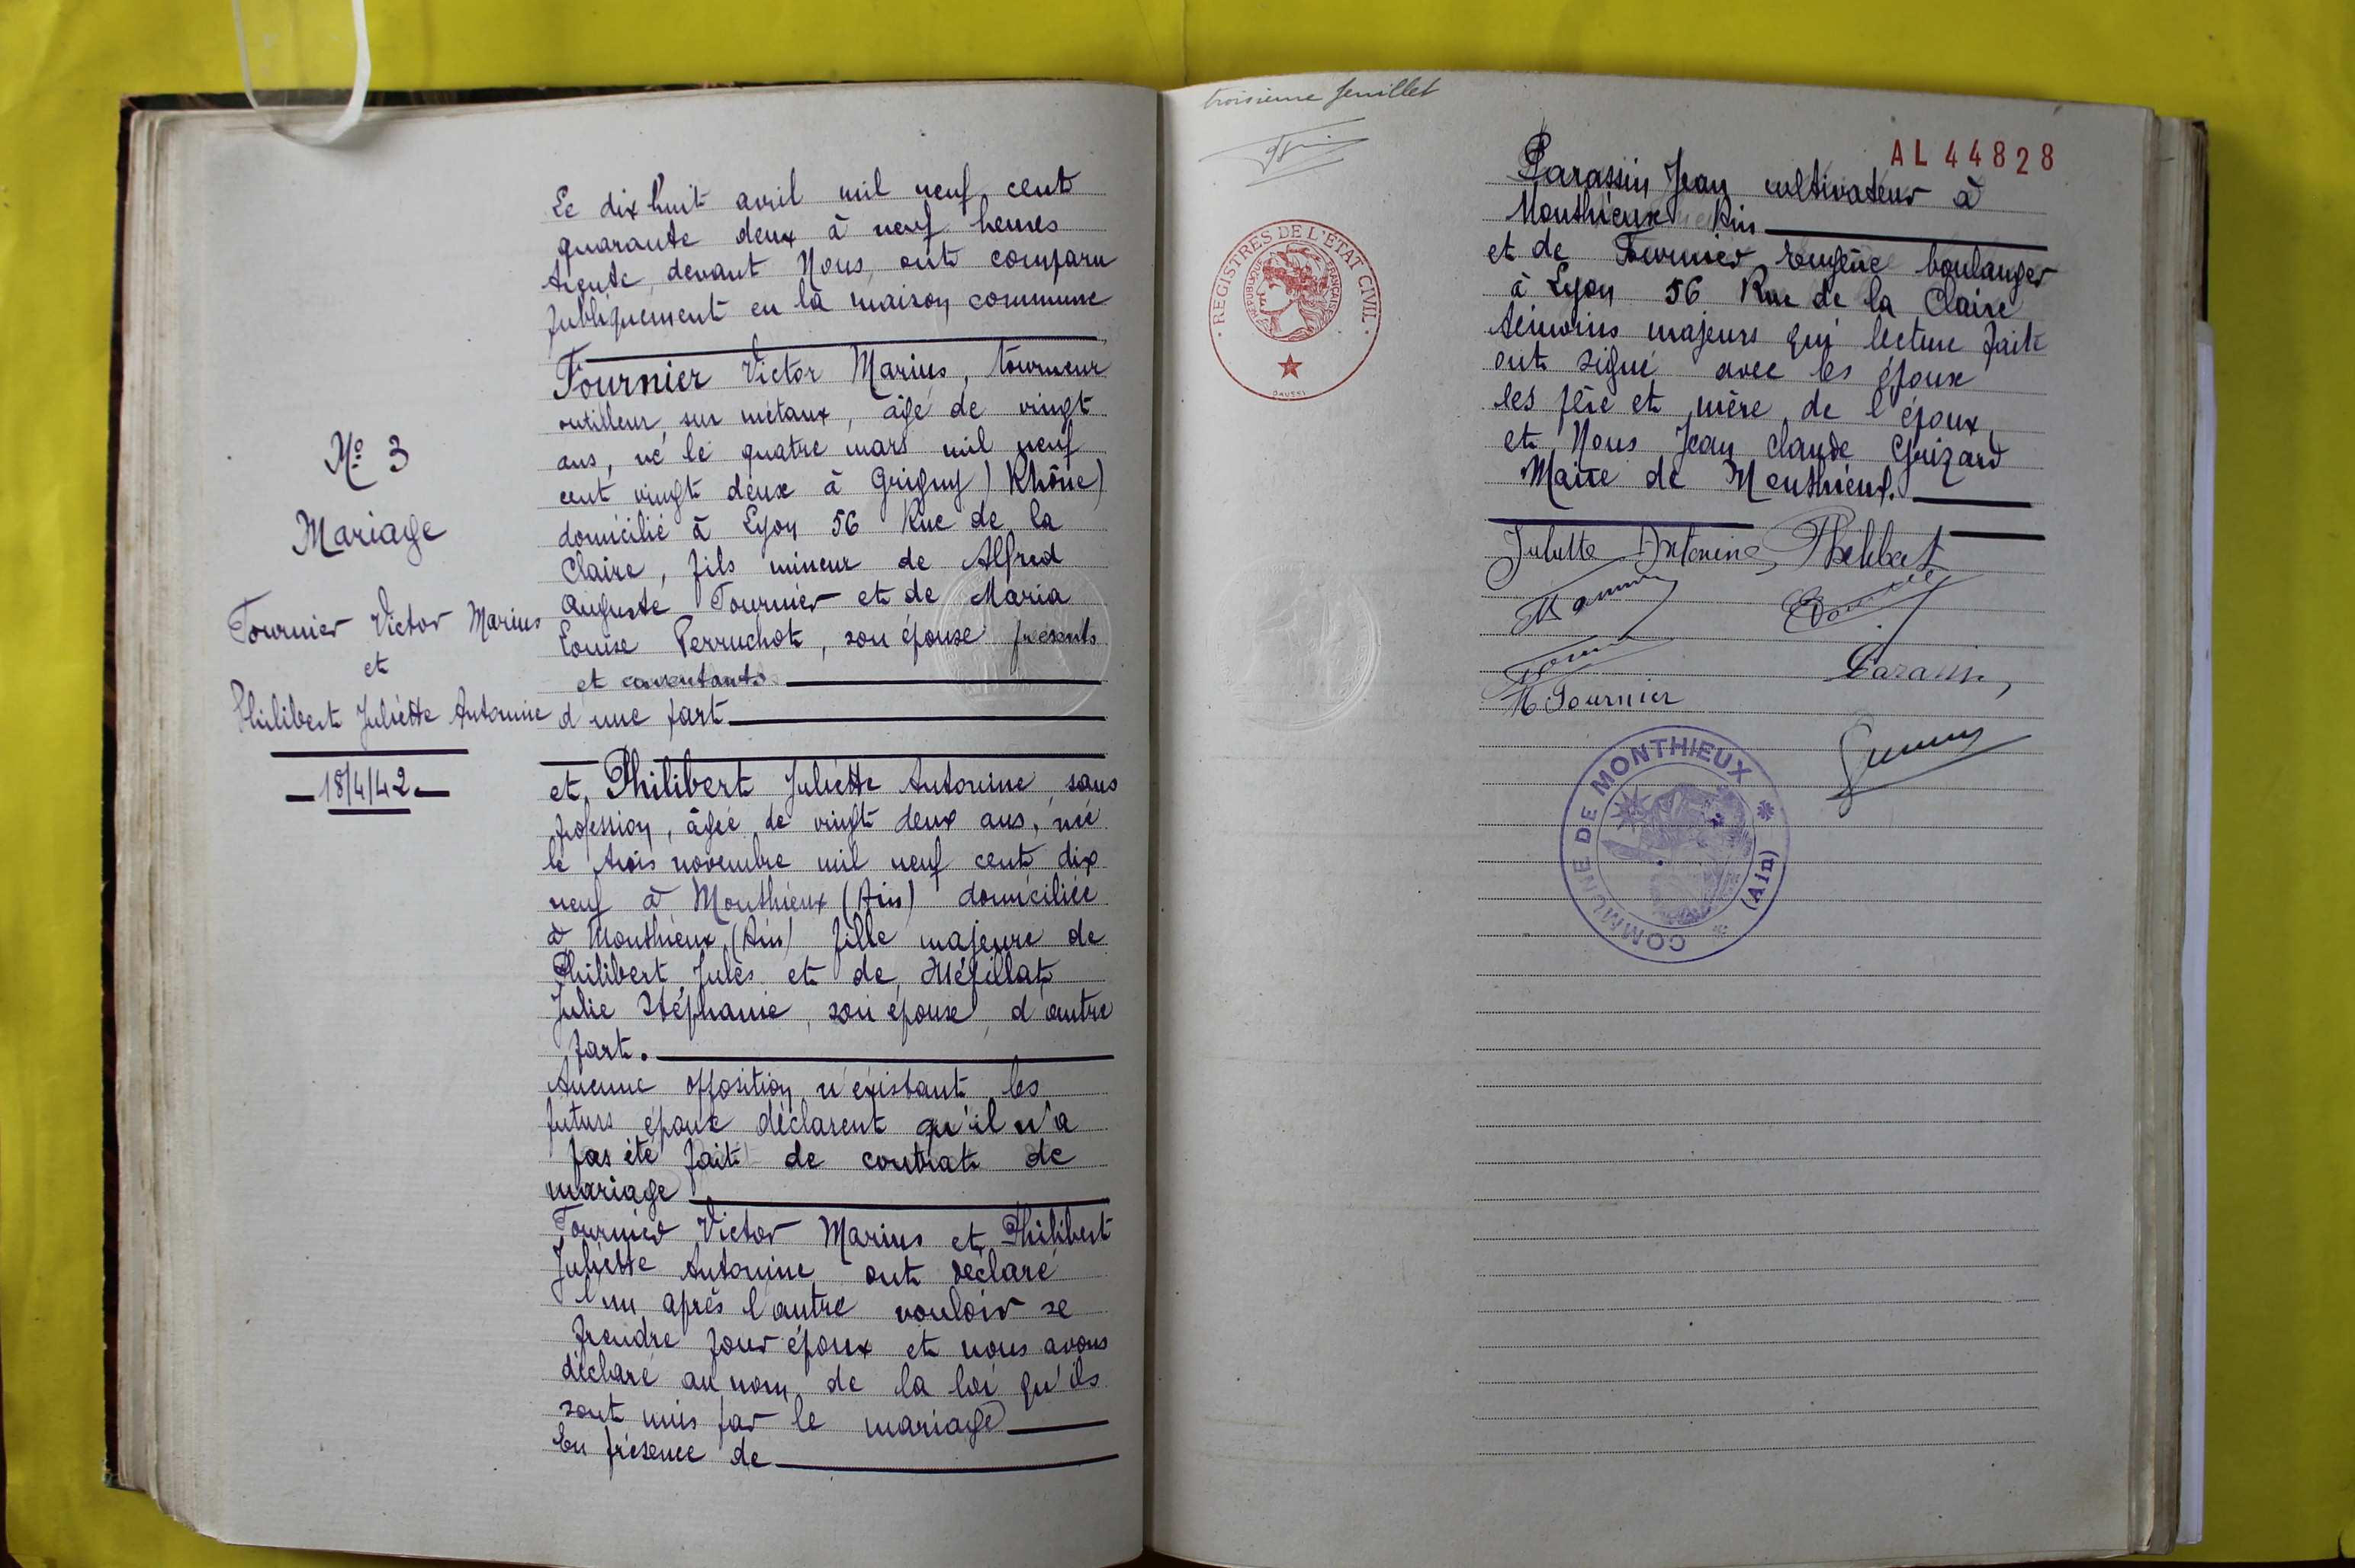 N° 3
Mariage
Fournier Victor Marius
et
Philibert Juliette Antonine
18/4/42
Le dix huit avril mil neuf cent
quarante deux à neuf heures
trente, devant Nous, ont comparu
publiquement en la maison commune
Fournier Victor Marius, tourneur
outilleur, sur métaux, âgé de vingt
ans, né le quatre mars mil neuf
cent vingt deux à Grigny (Rhône)
domicilié à Lyon 56 Rue de la
Claire, fils mineur de Alfred
Auguste Fournier et de Maria
Louise Perruchot, son épouse présents
et consentants
d'une part
et Philibert Juliette Antonine, sans
profession, âgée de vingt deux ans, née
le trois novembre mil neuf cent dix
neuf à Monthieux (Ain) domiciliée
à Monthieux (Ain) fille majeure de
Philibert Jules et de Mépillat
Julie Stéphanie, son épouse, d'autre
part.
Aucune opposition n'éxistant les
futurs époux déclarent qu'il n'a
pas été fait de contrat de
mariage
Fournier Victor Marius et Philibert
Juliette Antonine ont déclaré
l'un après l'autre vouloir se
prendre pour époux et nous avons
déclaré au nom de la loi qu'ils
sont unis par le mariage
En présence de
troisième feuillet
REGISTRES DE L'ÉTAT CIVIL
RÉPUBLIQUE FRANÇAISE
AL 44828
Parassin Jean cultivateur à
Monthieux Ain
et de Fournier Eugène boulanger
à Lyon 56 Rue de la Claire
témoins majeurs qui lecture faite
ont signé avec les époux
les père et mère de l'époux,
et Nous Jean Claude Grizard
Maire de Monthieux.
Juliette Antonine Philibert
Parassin
M Fournier
COMMUNE DE MONTHIEUX
(Ain)